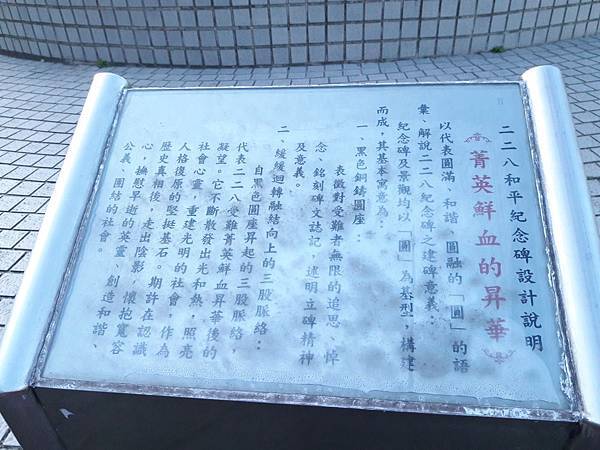 二二八和平紀念碑設計說明
菁英鮮血的昇華
以代表圓滿、和諧、圓融的「圓」的語
彙、解說二二八紀念碑之建碑意義：
紀念碑及景觀均以「圓」為基型，構建
而成，其基本寓意為：
一、黑色銅鑄圓座：
表徵對受難者無限的追思、悼
念、銘刻碑文誌記，述明立碑精神
及意義。
二、緩緩迴轉融結向上的三股脈絡：
自黑色圓座昇起的三股脈絡，
代表二二八受難菁英鮮血昇華後的
凝望。它不斷散發出光和熱，照亮
社會心靈，重建光明的社會，作為
人格復原的堅挺基石。期許在認識
歷史真相後，走出陰影，懷抱寬容
心，撫慰早逝的英靈、創造和諧、
公義、團結的社會。